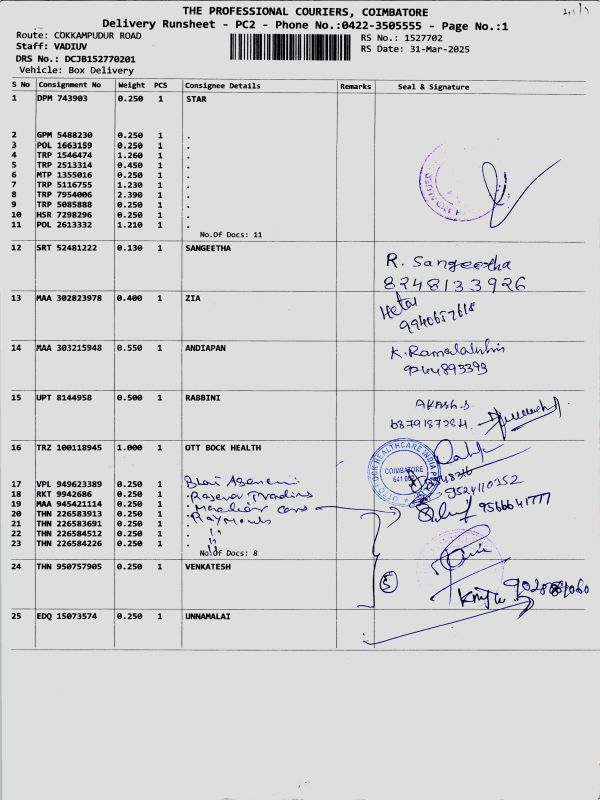 THE PROFESSIONAL COURIERS, COIMBATORE
Delivery Runsheet - PC2 - Phone No.:0422-3505555 - Page No.:1
Route: COKKAMPUDUR ROAD
RS No.: 1527702
Staff: VADIUV
RS Date: 31-Mar-2025
DRS No.: DCJB152770201
Vehicle: Box Delivery
S No Consignment No Weight PCS Consignee Details Remarks Seal & Signature
1 DPM 743903 0.250 1 STAR
2 GPM 5488230 0.250 1 .
3 POL 1663159 0.250 1 .
4 TRP 1546474 1.260 1 .
5 TRP 2513314 0.450 1 .
6 MTP 1355016 0.250 1 .
7 TRP 5116755 1.230 1 .
8 TRP 7954006 2.390 1 .
9 TRP 5085888 0.250 1 .
10 HSR 7298296 0.250 1 .
11 POL 2613332 1.210 1 .
No.Of Docs: 11
12 SRT 52481222 0.130 1 SANGEETHA
R. Sangeetha
8248133926
13 MAA 302823978 0.400 1 ZIA
9940657618
14 MAA 303215948 0.550 1 ANDIAPAN
K. Ramalakshmi
9244893393
15 UPT 8144958 0.500 1 RABBINI
AKASH.S
16 TRZ 100118945 1.000 1 OTT BOCK HEALTH
COIMBATORE
17 VPL 949623389 0.250 1
18 RKT 9942686 0.250 1 .
9524110352
19 MAA 945421114 0.250 1 .
9566641777
20 THN 226583913 0.250 1 . Raymonds
21 THN 226583691 0.250 1 . "
22 THN 226584512 0.250 1 . "
23 THN 226584226 0.250 1 . "
No.Of Docs: 8
24 THN 950757905 0.250 1 VENKATESH
5
25 EDQ 15073574 0.250 1 UNNAMALAI